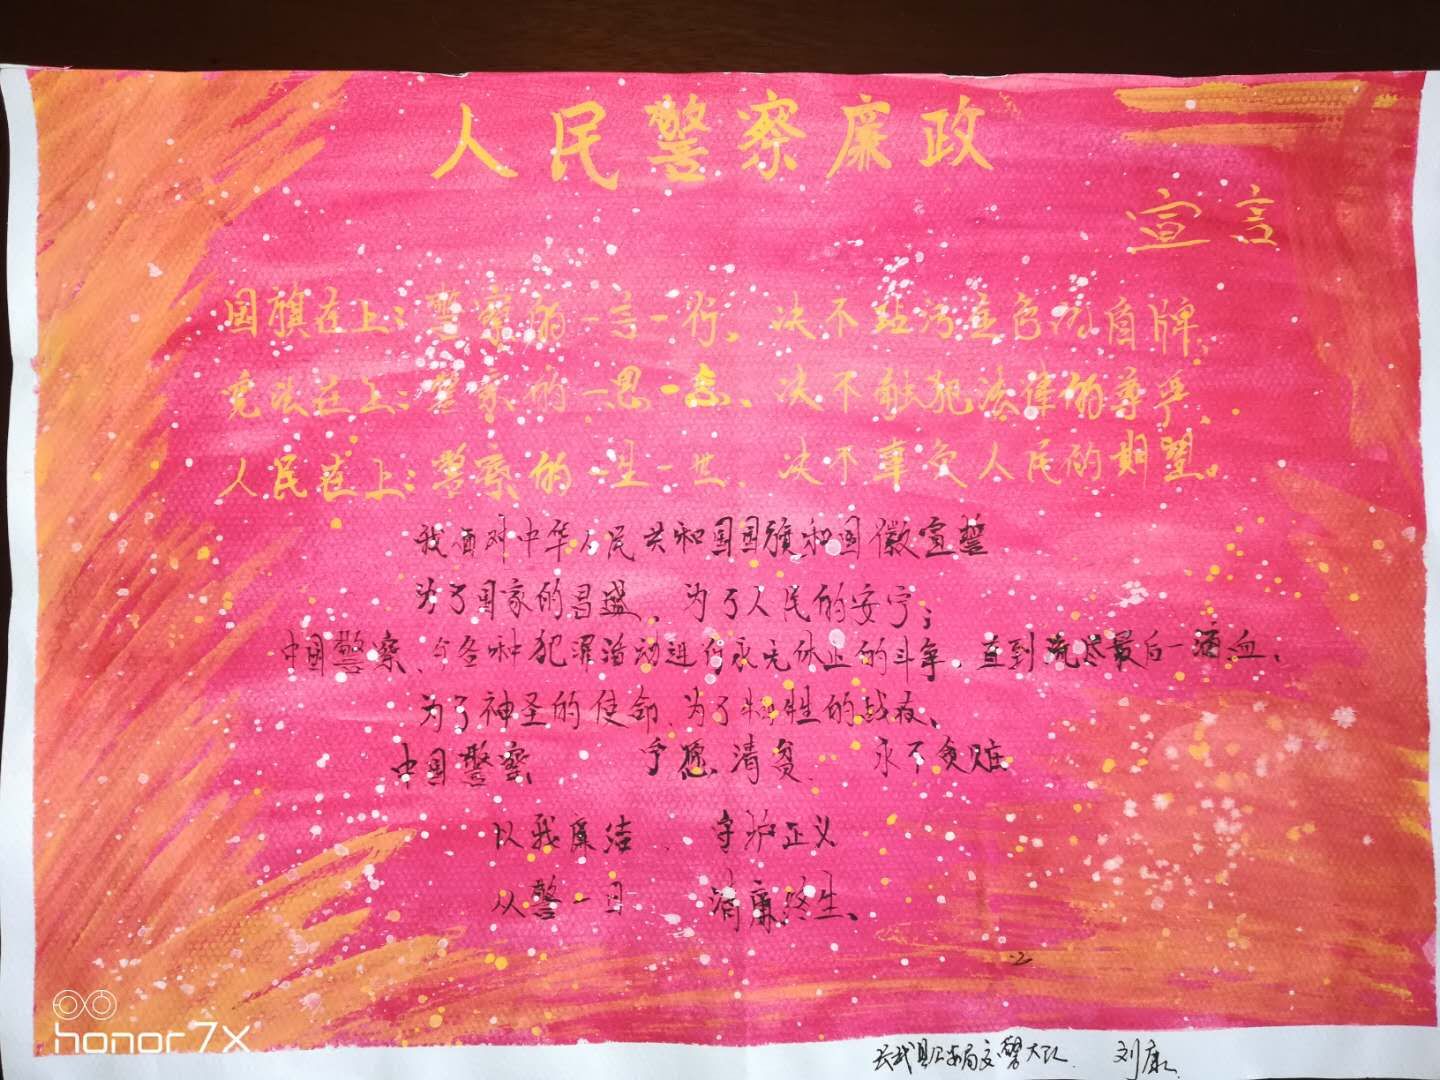 人民警察廉政
宣言
国旗在上：警察的一言一行，决不玷污金色的盾牌，
宪法在上：警察的一思一念、决不触犯法律的尊严，
人民在上：警察的一生一世、决不辜负人民的期望。
我面对中华人民共和国国旗和国徽宣誓
为了国家的昌盛，为了人民的安宁；
中国警察、与各种犯罪活动进行永无休止的斗争，直到流尽最后一滴血、
为了神圣的使命、为了牺牲的战友、
中国警察 宁愿清贫、 永不贪赃
以我廉洁、 守护正义
从警一日 清廉终生、
长武县公安局交警大队 刘康
honor 7X